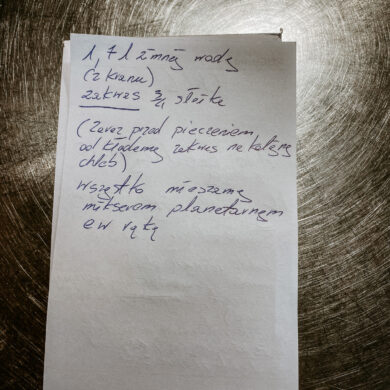 1,7 l zimnej wody
(z kranu)
zakwas 3/4 słoika
(Zaraz przed pieczeniem
odkładamy zakwas na kolejny
chleb)
Wszystko mieszamy
mikserem planetarnym
ew ręką